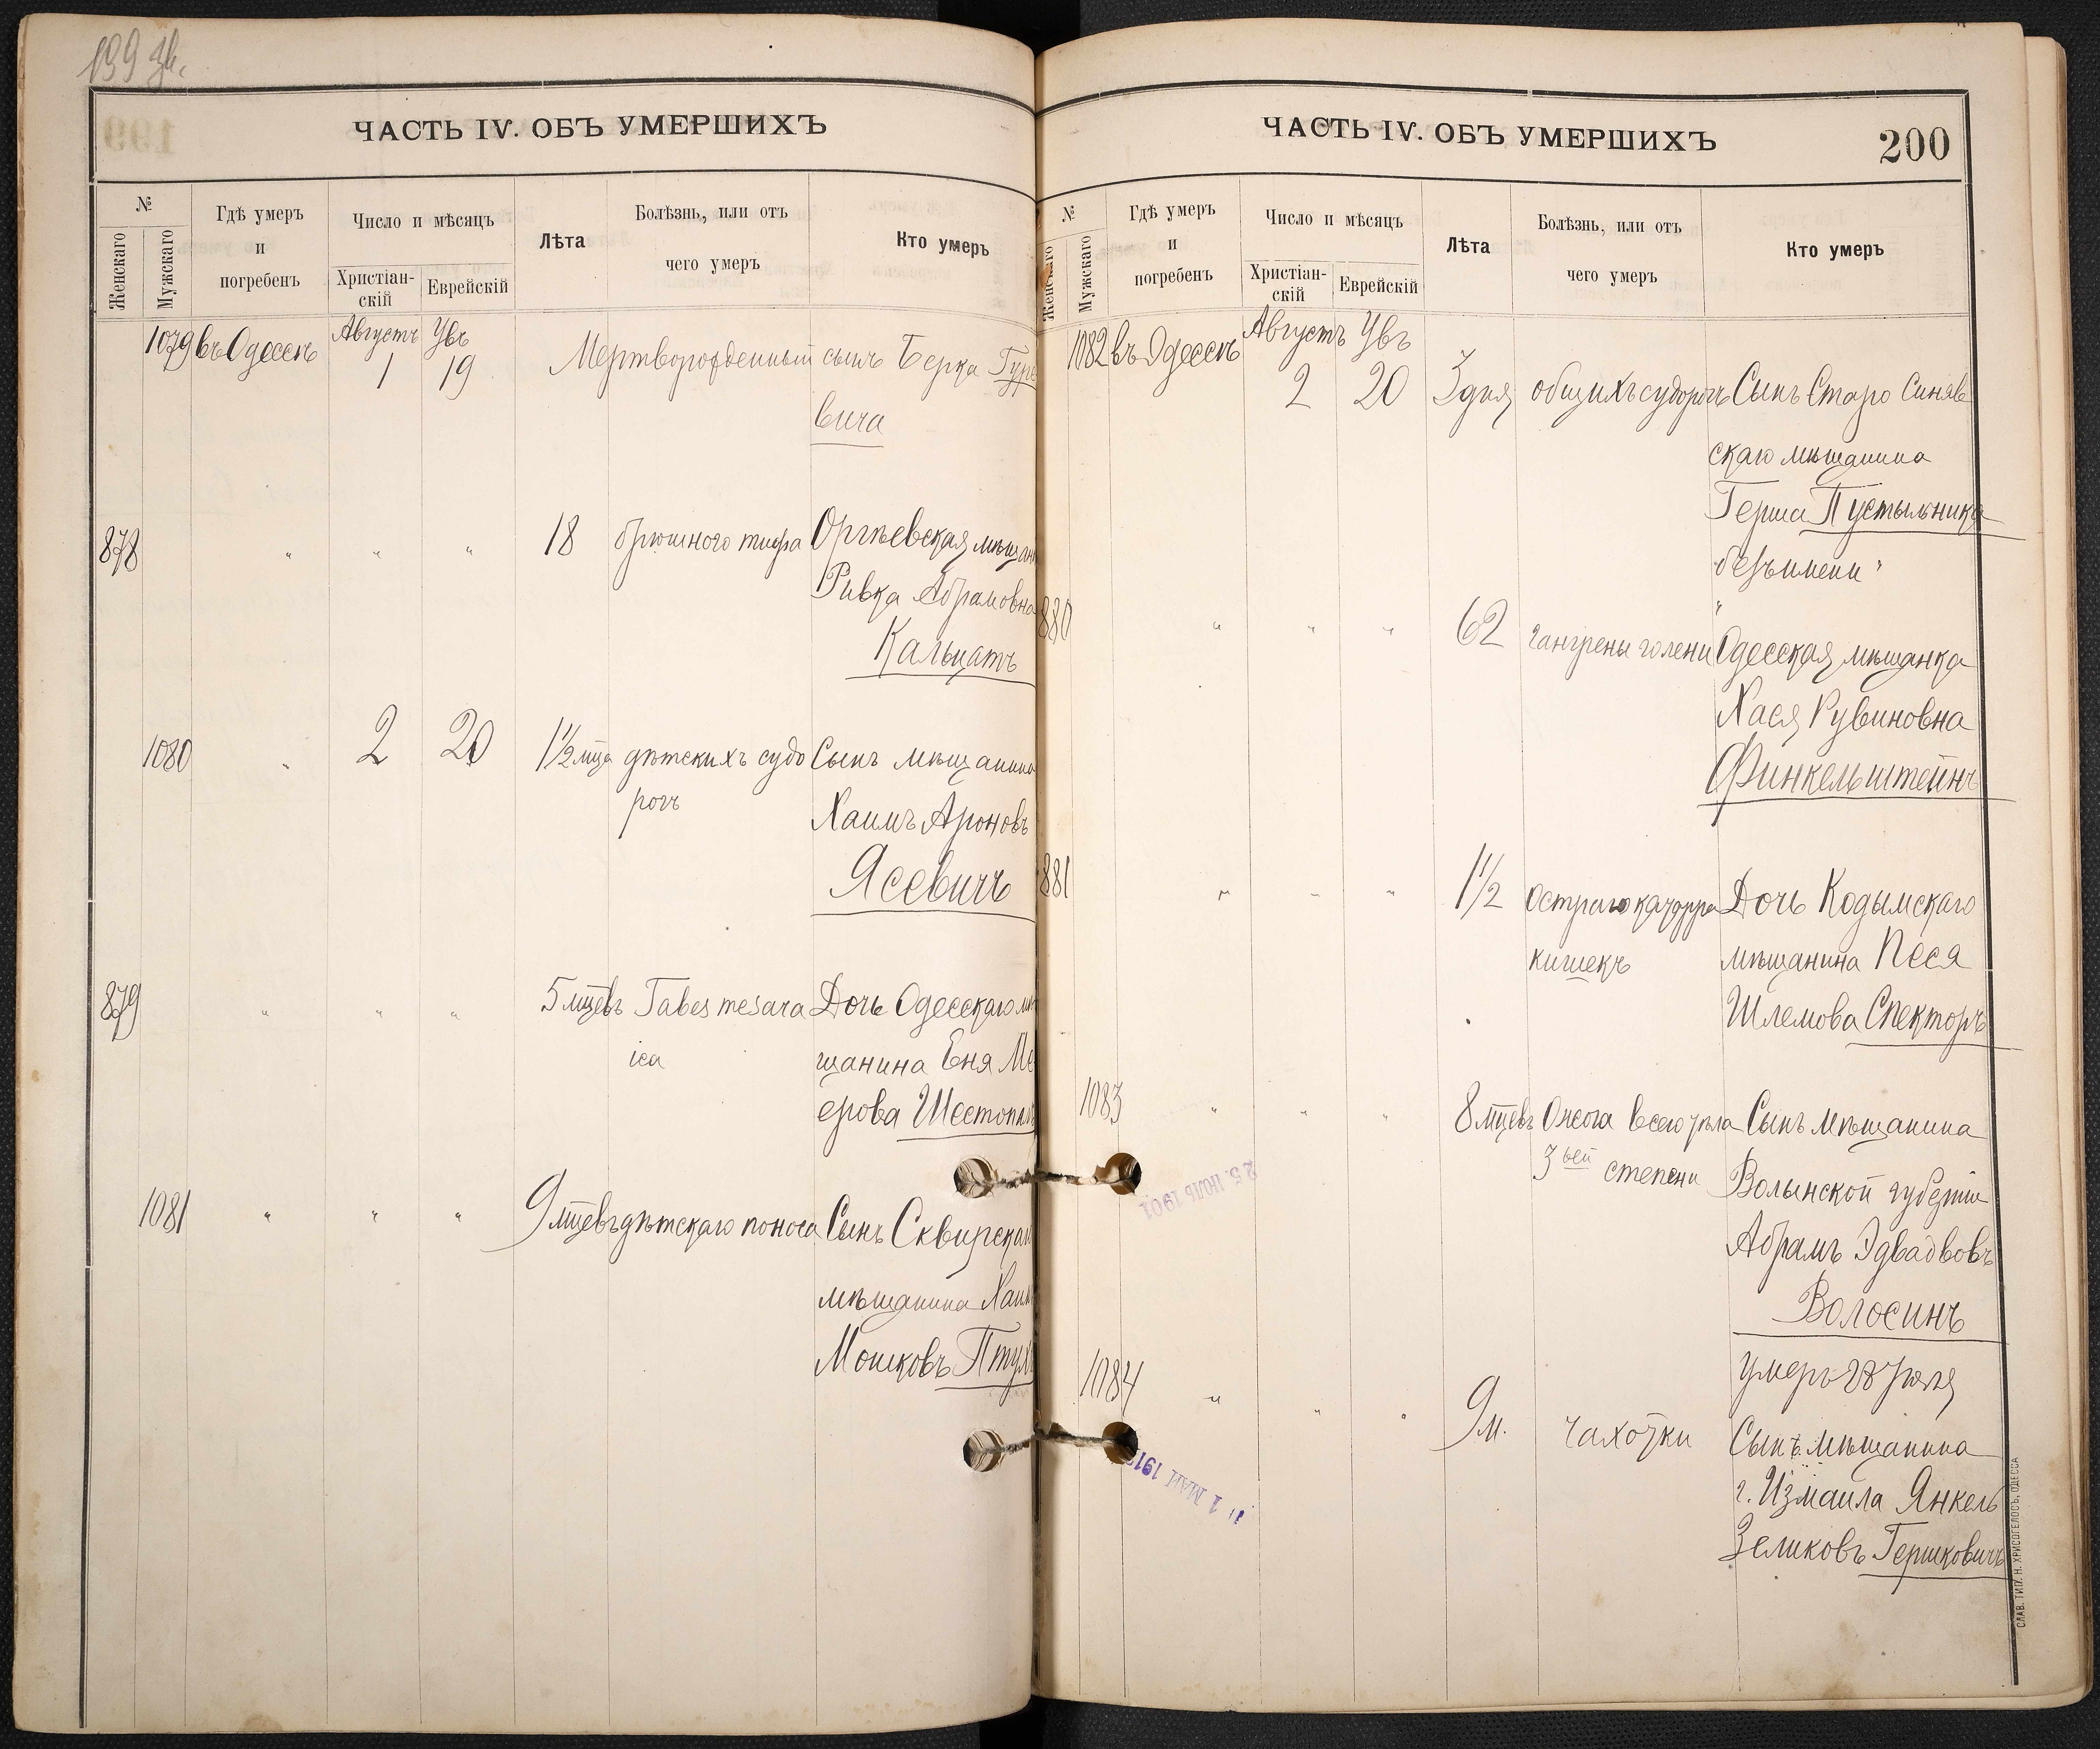 199 зв.
ЧАСТЬ IV. ОБЪ УМЕРШИХЪ
№
Женскаго
Мужскаго
Гдѣ умеръ
и
погребенъ
Число и мѣсяцъ
Христіан-
скій
Еврейскій
Лѣта
Болѣзнь, или отъ
чего умеръ
Кто умеръ
1079 въ Одессѣ Августъ 1 Увъ 19 Мертворожденный сынъ Берка Гуре
вича
878 " " " 18 брюшного тифа Оргѣевская мѣщан
Ривка Абрамовна
Кальцатъ
1080 " 2 20 1½ мца дѣтскихъ судо Сынъ мѣщанина
рогъ Хаимъ Ароновъ
Ясевичъ
879 " " " 5 мцевъ Tabes mesara Дочь Одесскаго мѣ
ica щанина Еня Ме
ерова Шестопал
1081 " " " 9 мцевъ дѣтскаго поноса Сынъ Сквирскаго
мѣщанина Хаим
Мошковъ Птух
ЧАСТЬ IV. ОБЪ УМЕРШИХЪ
200
№
Женскаго
Мужскаго
Гдѣ умеръ
и
погребенъ
Число и мѣсяцъ
Христіан-
скій
Еврейскій
Лѣта
Болѣзнь, или отъ
чего умеръ
Кто умеръ
1082 въ Одессѣ Августъ 2 Увъ 20 3 дня общихъ судорогъ Сынъ Старо Синяв
скаго мѣщанина
Герша Пустыльника
безъ имени "
880 " " " 62 гангрены голени Одесская мѣщанка
Хася Рувиновна
Финкельштейнъ
881 " " " 1½ остраго катарра Дочь Кодымскаго
кишекъ мѣщанина Песя
Шлемова Спекторъ
1083 " " " 8 мцевъ Ожога всего тѣла Сынъ мѣщанина
3ьей степени Волынской губерніи
Абрамъ
Волосинъ
умеръ 28 Іюля
1084 " " " 9 м. чахотки Сынъ мѣщанина
г. Измаила Янкель
Зеликовъ Гершковичъ
25. ІЮЛЬ 1901
1 МАЙ 191
СЛАВ. ТИП. Н. ХРИСОГЕЛОСЪ, ОДЕССА